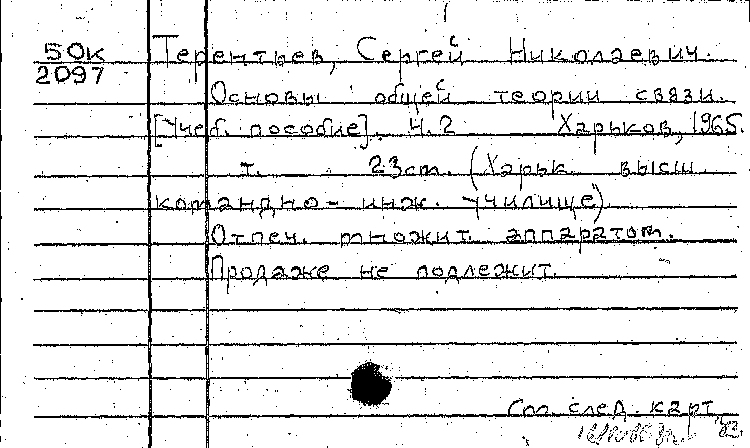 50к
2097
Терентьев, Сергей Николаевич.
Основы общей теории связи.
[Учеб. пособие]. Ч.2 Харьков, 1965.
т. 23см. (Харьк. высш.
командно-инж. училище).
Отпеч. множит. аппаратом.
Продаже не подлежит.
См. след. карт.